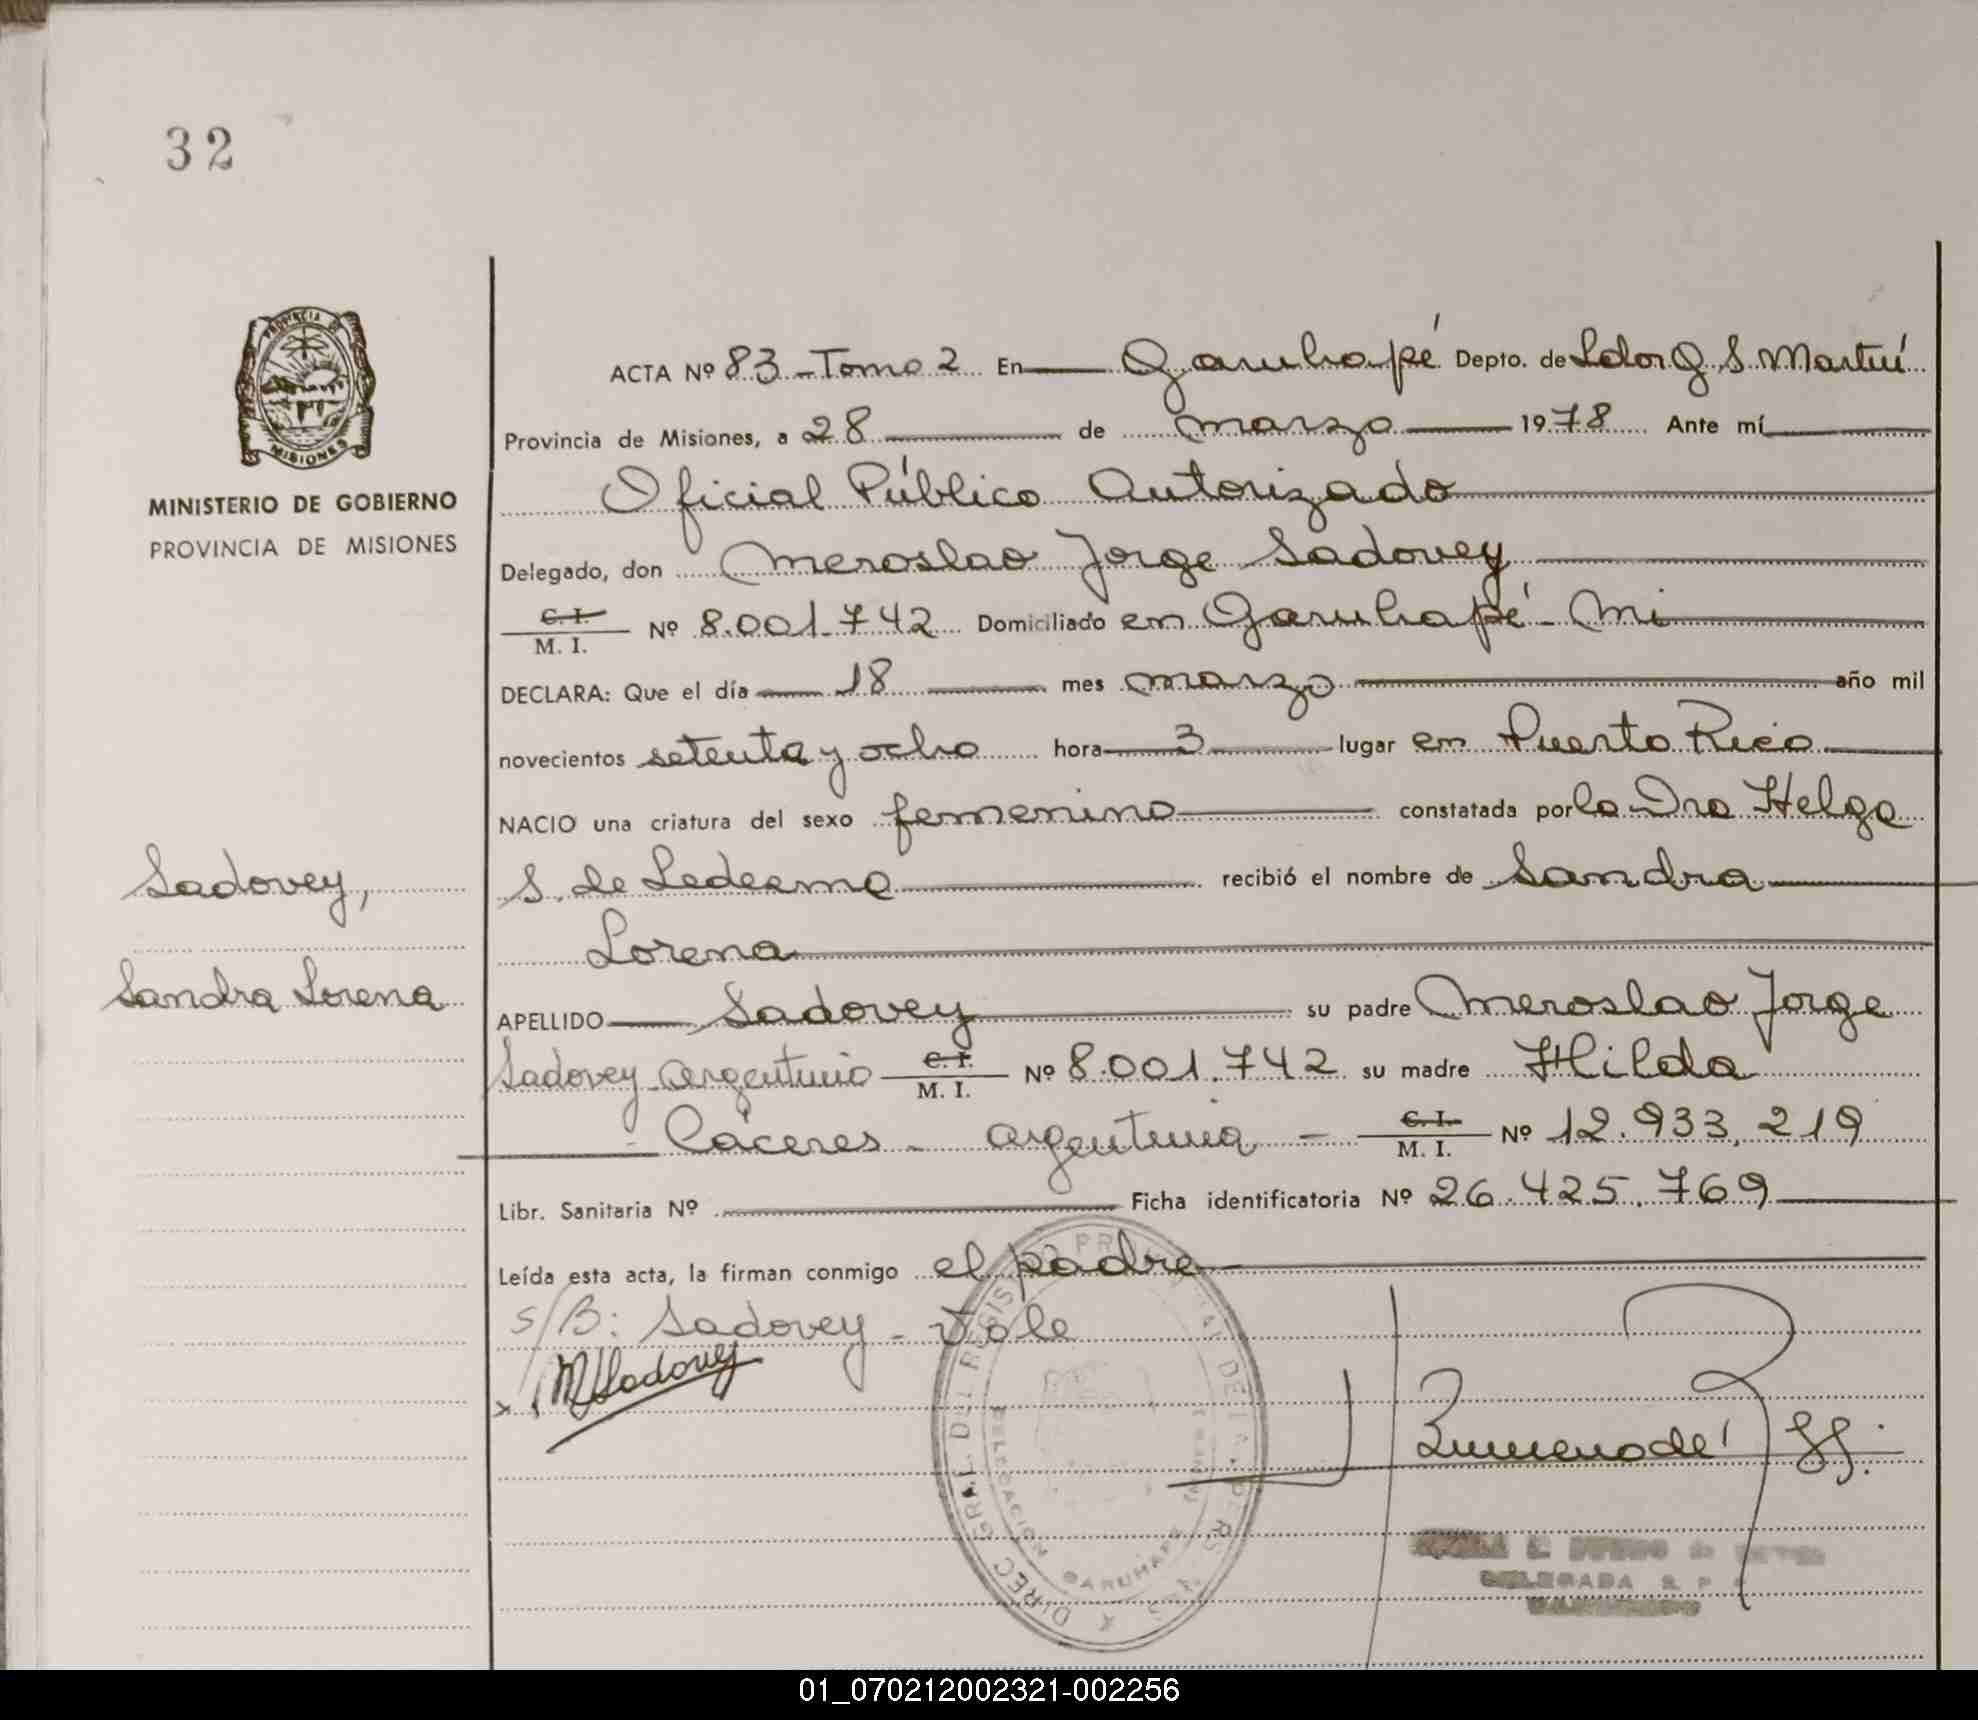 32
PROVINCIA DE
MISIONES
MINISTERIO DE GOBIERNO
PROVINCIA DE MISIONES
ACTA Nº 83 - Tomo 2 En Garuhapé Depto. de Ldor G. S. Martín
Provincia de Misiones, a 28 de marzo 1978 Ante mí
Oficial Público Autorizado
Delegado, don Meroslao Jorge Sadovey
C. I.
M. I. Nº 8.001.742 Domiciliado en Garuhapé - Mi
DECLARA: Que el día 18 mes marzo año mil
novecientos setenta y ocho hora 3 lugar en Puerto Rico
NACIO una criatura del sexo femenino constatada por la Dra Helga
S. de Ledesma recibió el nombre de Sandra
Lorena
Sadovey,
Sandra Lorena
APELLIDO Sadovey su padre Meroslao Jorge
Sadovey argentino C. I.
M. I. Nº 8.001.742 su madre Hilda
Cáceres - argentina - C. I.
M. I. Nº 12.933.219
Libr. Sanitaria Nº Ficha identificatoria Nº 26.425.769
Leída esta acta, la firman conmigo el padre
S/B: Sadovey - Vale
M Sadovey
DIREC. GRAL. DEL REGISTRO PROVINCIAL DE LAS PERS.
DELEGACION GARUHAPE
DELEGADA R. P.
01_070212002321-002256